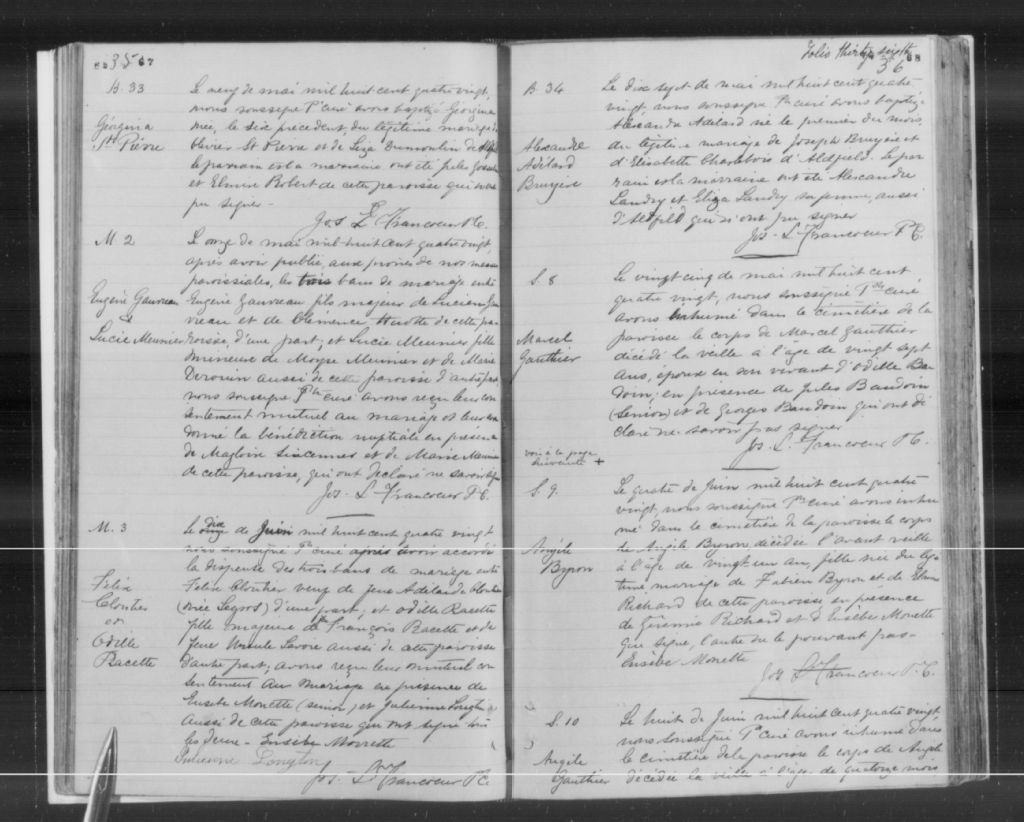 35 67
B. 33
Géorgina
St Pierre
Le neuf de mai mil huit cent quatre vingt,
nous soussigné Ptre curé avons baptizé Géorgina
née, le six précédent, du légitime mariage de
Olivier St Pierre et de Liza Dumoulin de
le parrain et la marraine ont été Jules
et Elmire Robert de cette paroisse qui n'ont
pu signer -
Jos L. Francoeur P.C.
M. 2
Eugène Gauvreau
&
Lucie Meunier
Le onze de mai mil huit cent quatre vingt,
après avoir publié, aux prones de nos messes
paroissiales, les trois bans de mariage entre
Eugène Gauvreau fils majeur de Lucien Gau
vreau et de Clémence Huotte de cette pa
roisse, d'une part; et Lucie Meunier fille
mineure de Moyse Meunier et de Marie
Derouin aussi de cette paroisse d'autre part
nous soussigné Ptre curé avons reçu leur con
sentement mutuel au mariage et leur avons
donné la bénédiction nuptiale en présence
de Magloire et de Marie Meunier
de cette paroisse, qui ont déclaré ne savoir signer
Jos. L. Francoeur P.C.
M. 3
Félix
Cloutier
et
Odille
Racette
Le dix de Juin mil huit cent quatre vingt
nous soussigné Ptre curé après avoir accordé
la dispense des trois bans de mariage entre
Félix Cloutier veuf de feue Adélaide Cloutier
(née Legros) d'une part, et Odille Racette
fille majeure de François Racette et de
feue Ursule Lavoie aussi de cette paroisse
d'autre part, avons reçu leur mutuel con
sentement au mariage en présence de
Eusèbe Monette (senior) et Julienne Longtin
aussi de cette paroisse qui ont signé tous
les deux - Eusèbe Monette
Julienne Longtin
Jos. L. Francoeur P.C.
Folio thirty sixth
36 68
B 34
Alexandre
Adélard
Bruyère
Le dix sept de mai mil huit cent quatre
vingt, nous soussigné Ptre curé avons baptizé
Alexandre Adélard né le premier du mois,
du légitime mariage de Joseph Bruyère et
d'Elisabeth Charlebois d'Aldfield. Le par
rain et la marraine ont été Alexandre
Landry et Eliza Landry sa femme, aussi
d'Aldfield qui n'ont pu signer
Jos. L. Francoeur P.C.
S. 8
Marcel
Gauthier
Le vingt cinq de mai mil huit cent
quatre vingt, nous soussigné Ptre curé
avons inhumé dans le cimétière de la
paroisse le corps de Marcel Gauthier
décédé la veille à l'âge de vingt sept
ans, époux en son vivant d'Odille Bau
doin; en présence de Jules Baudoin
(senior) et de Georges Baudoin qui ont dé
claré ne savoir pas signer
Jos. L. Francoeur P.C.
voir à la page
suivante +
S. 9.
Angèle
Byron
Le quatre de Juin mil huit cent quatre
vingt, nous soussigné Ptre curé avons inhu
mé dans le cimétière de la paroisse le corps
de Angèle Byron, décédée l'avant veille
à l'âge de vingt un an, fille née du légi
time mariage de Fabien Byron et de
Richard de cette paroisse en présence
de Gérémie Richard et d'Eusèbe Monette
qui signe, l'autre ne le pouvant pas -
Eusèbe Monette
Jos L. Francoeur P.C.
S. 10
Angèle
Gauthier
Le huit de Juin mil huit cent quatre vingt
nous soussigné Ptre curé avons inhumé dans
le cimetière de la paroisse le corps de Angèle
décédée la veille à l'âge de quatorze mois